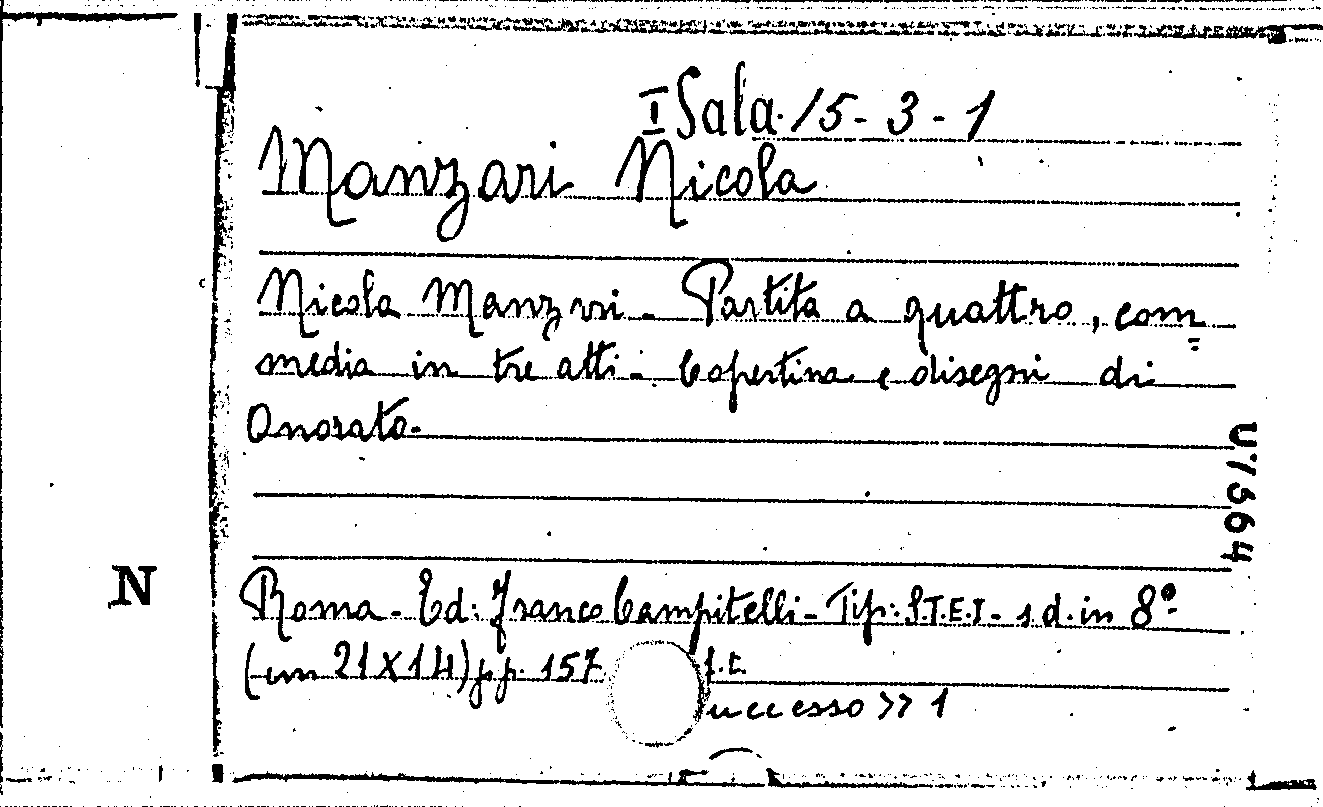 I Sala. 15-3-1
Manzari Nicola
Nicola Manzari - Partita a quattro, com=
media in tre atti - Copertina e disegni di
Onorato.
U7564
N
Roma - Ed: Franco Campitelli - Tip: S.T.E.I - s d. in 8º
(cm 21X14) pp. 157 f.t.
uccesso >> 1